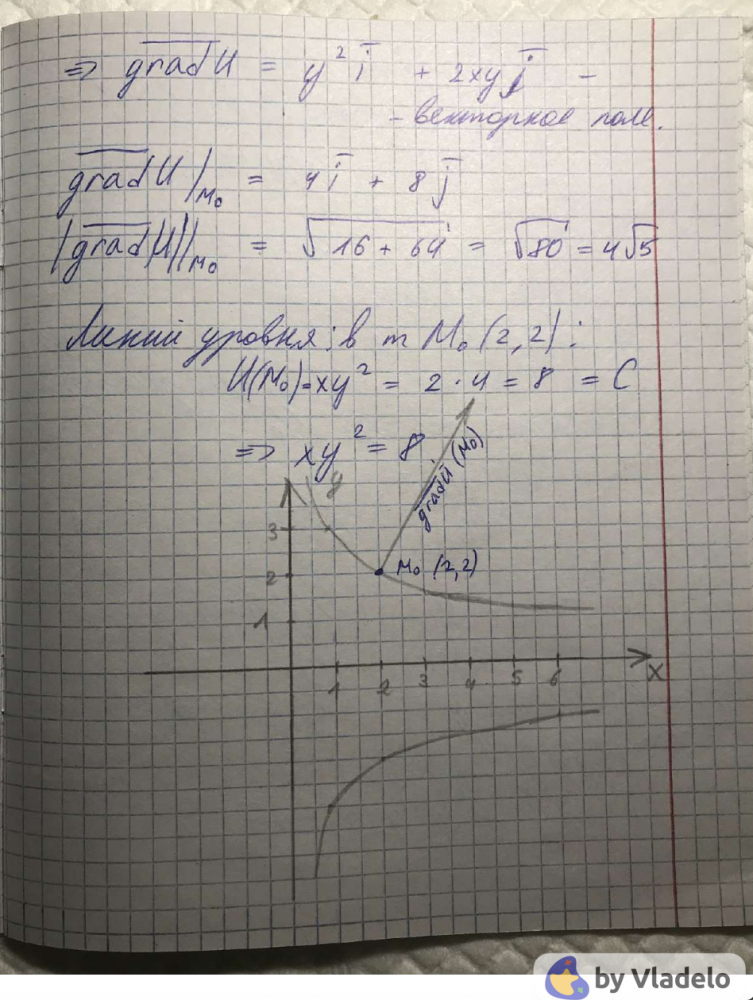 => grad U = y² i + 2xy j -
- векторное поле.
grad U |M₀ = 4 i + 8 j
|grad U| |M₀ = √16 + 64 = √80 = 4√5
Линий уровня: в т M₀ (2,2):
U(M₀) = xy² = 2 · 4 = 8 = C
=> xy² = 8
y
grad U (M₀)
3
2
M₀ (2,2)
1
1 2 3 4 5 6 x
by Vladelo